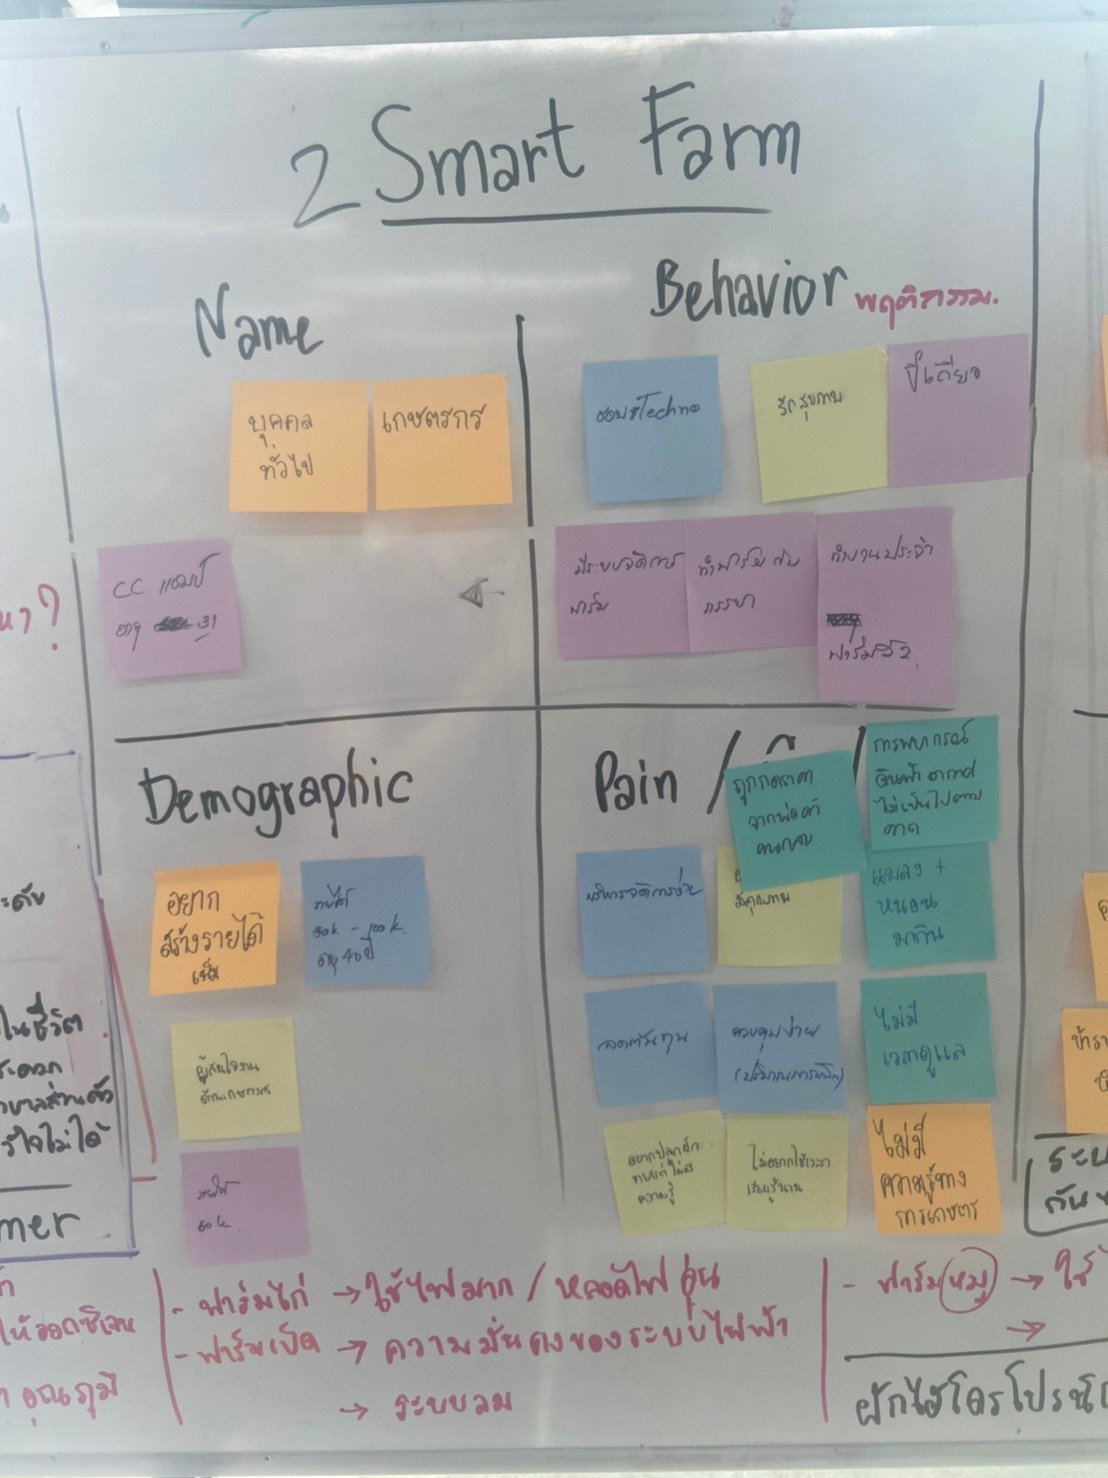 2 Smart Farm
Name
บุคคล
ทั่วไป
เกษตรกร
CC แชมป์
อายุ 31
Behavior พฤติกรรม.
ชอบ Techno
รักสุขภาพ
ขี้เกียจ
มีระบบจัดการ
ฟาร์ม
ทำฟาร์มกับ
ภรรยา
ทำงานประจำ
ฟาร์ม
Demographic
อยาก
สร้างรายได้
เพิ่ม
รายได้
50k - 100k.
อายุ 40 ปี
ผู้สนใจงาน
ด้านเกษตร
รายได้
50k.
Pain /
ถูกกดราคา
จากพ่อค้า
คนกลาง
การพยากรณ์
ดินฟ้าอากาศ
ไม่เป็นไปตาม
คาด
บริหารจัดการง่าย
มีคุณภาพ
แมลง +
หนอน
มากิน
ลดต้นทุน
ควบคุมง่าย
(ปริมาณการผลิต)
ไม่มี
เวลาดูแล
อยากปลูกผัก
ทานแต่ไม่มี
ความรู้
ไม่อยากใช้เวลา
เรียนรู้นาน
ไม่มี
ความรู้ทาง
การเกษตร
- ฟาร์มไก่ → ใช้ไฟมาก / หลอดไฟอุ่น
- ฟาร์มเป็ด → ความมั่นคงของระบบไฟฟ้า
→ ระบบลม
- ฟาร์มหมู → ใช้
→
ผักไฮโดรโปรนิ
ในชีวิต
สะดวก
ใจไม่ได้
mer
ให้ออกซิเจน
อุณภูมิ